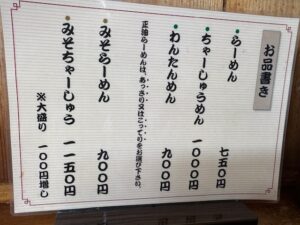 お品書き
らーめん 七五〇円
ちゃーしゅうめん 一〇〇〇円
わんたんめん 九〇〇円
正油らーめんは、あっさり又はこってりをお選び下さい。
みそらーめん 九〇〇円
みそちゃーしゅう 一一五〇円
※大盛り 一〇〇円増し